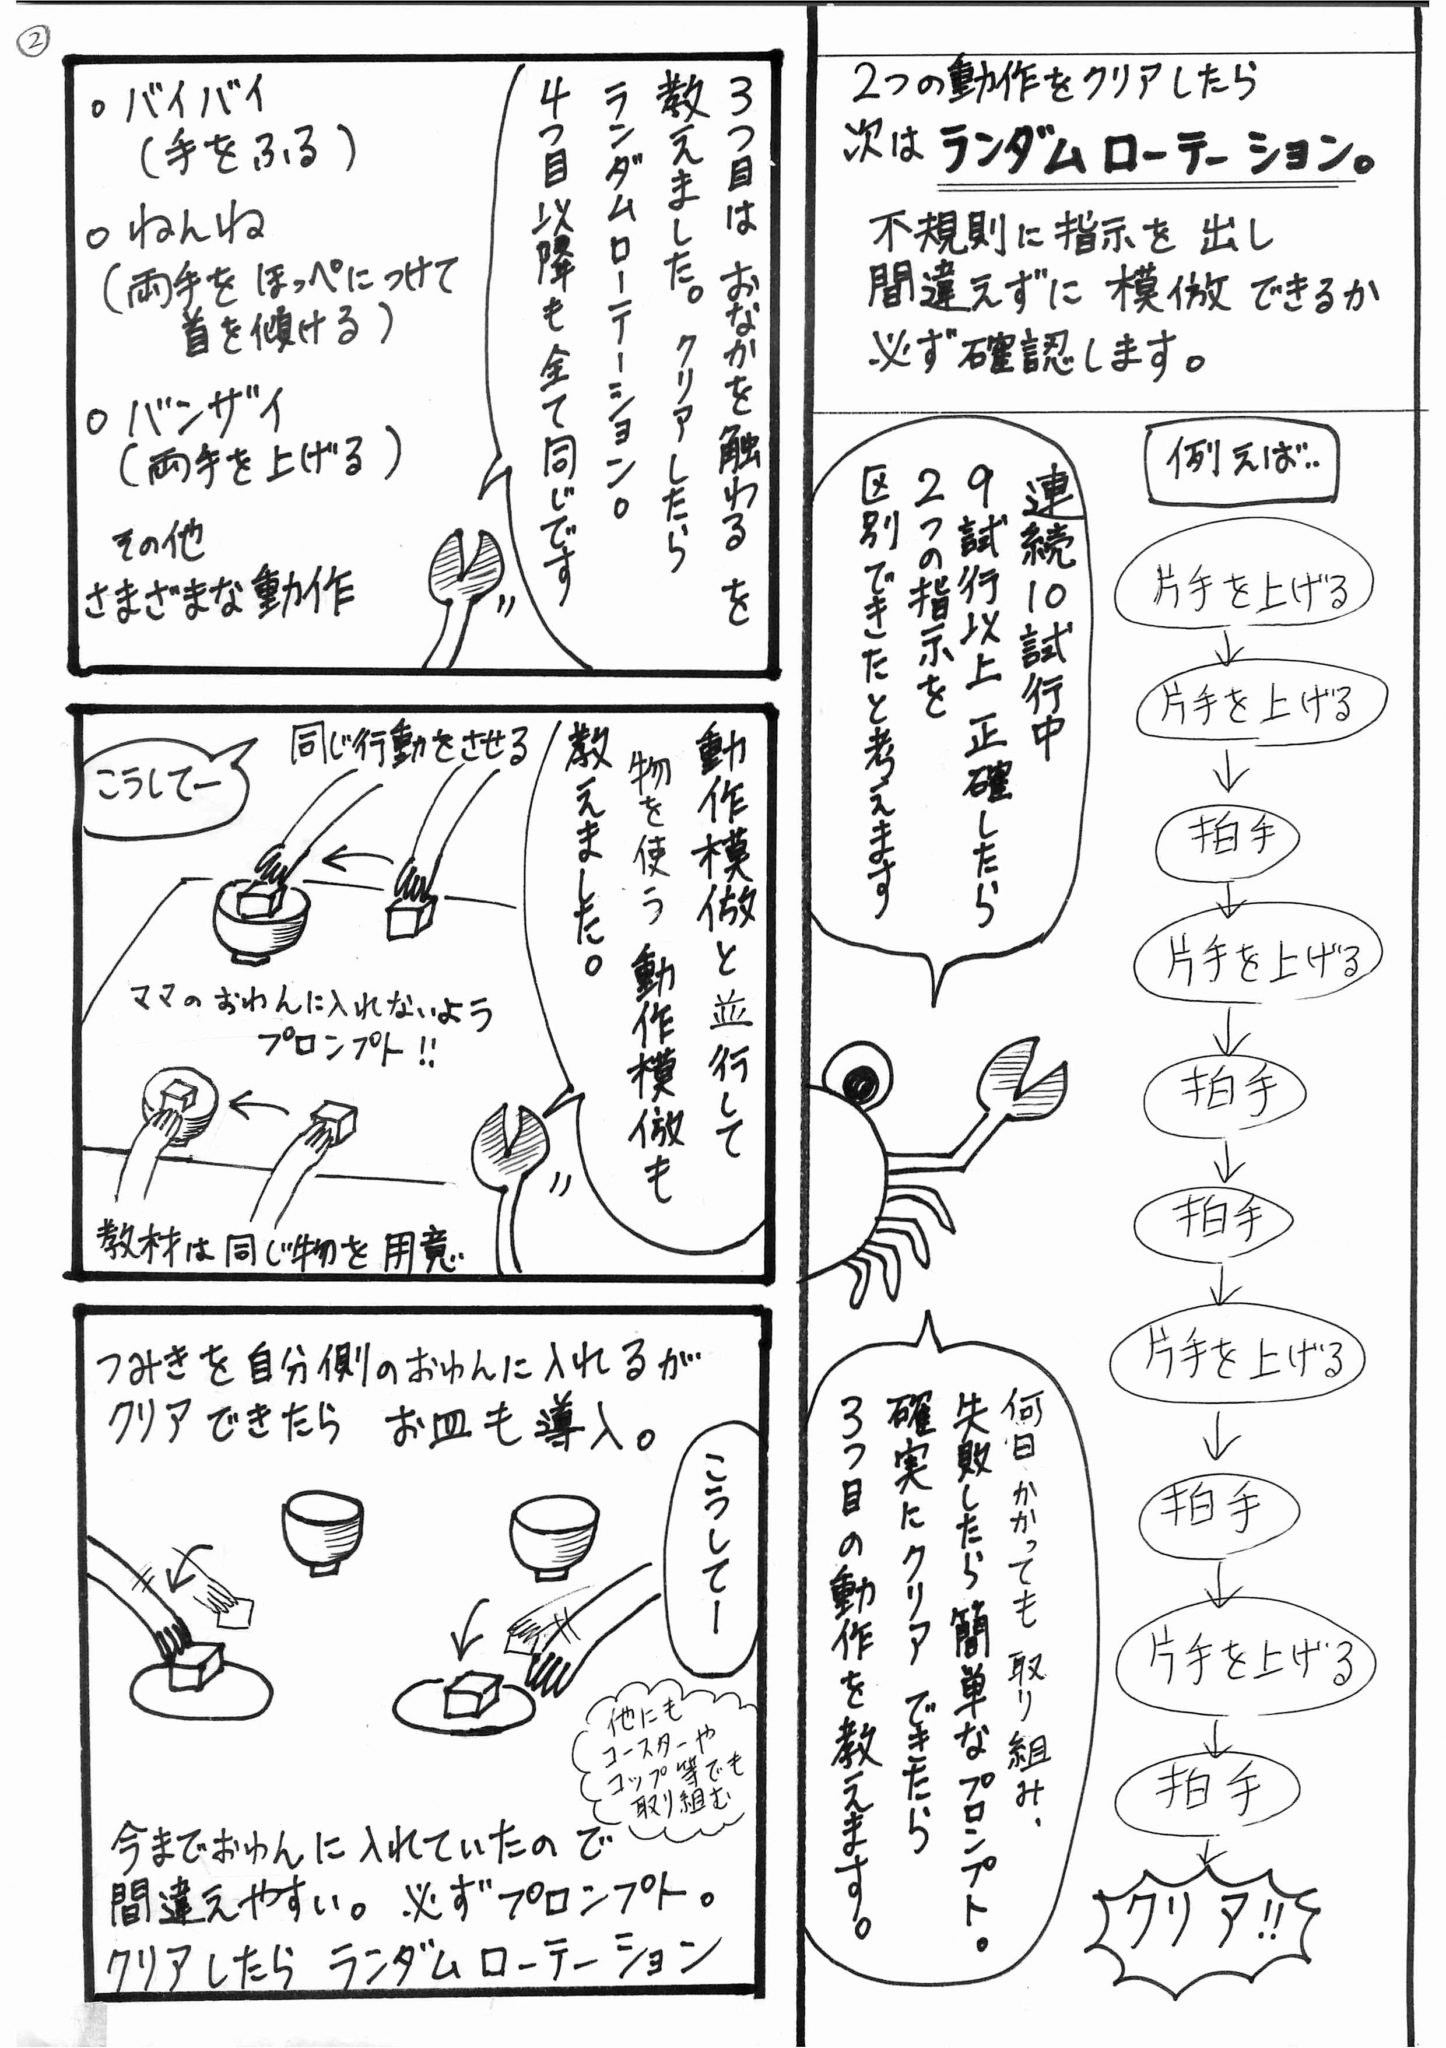 ②
2つの動作をクリアしたら
次は ランダムローテーション。
不規則に指示を出し
間違えずに模倣できるか
必ず確認します。
例えば..
片手を上げる
片手を上げる
拍手
片手を上げる
拍手
拍手
片手を上げる
拍手
片手を上げる
拍手
クリア!!
連続10試行中
9試行以上正確したら
2つの指示を
区別できたと考えます
何日かかっても取り組み、
失敗したら簡単なプロンプト。
確実にクリアできたら
3つ目の動作を教えます。
3つ目はおなかを触わるを
教えました。クリアしたら
ランダムローテーション。
4つ目以降も全て同じです
○バイバイ
(手をふる)
○ねんね
(両手をほっぺにつけて
首を傾ける)
○バンザイ
(両手を上げる)
その他
さまざまな動作
動作模倣と並行して
物を使う動作模倣も
教えました。
同じ行動をさせる
こうしてー
ママのおわんに入れないよう
プロンプト!!
教材は同じ物を用意
つみきを自分側のおわんに入れるが
クリアできたら お皿も導入。
こうしてー
他にも
コースターや
コップ等でも
取り組む
今までおわんに入れていたので
間違えやすい。必ずプロンプト。
クリアしたら ランダムローテーション